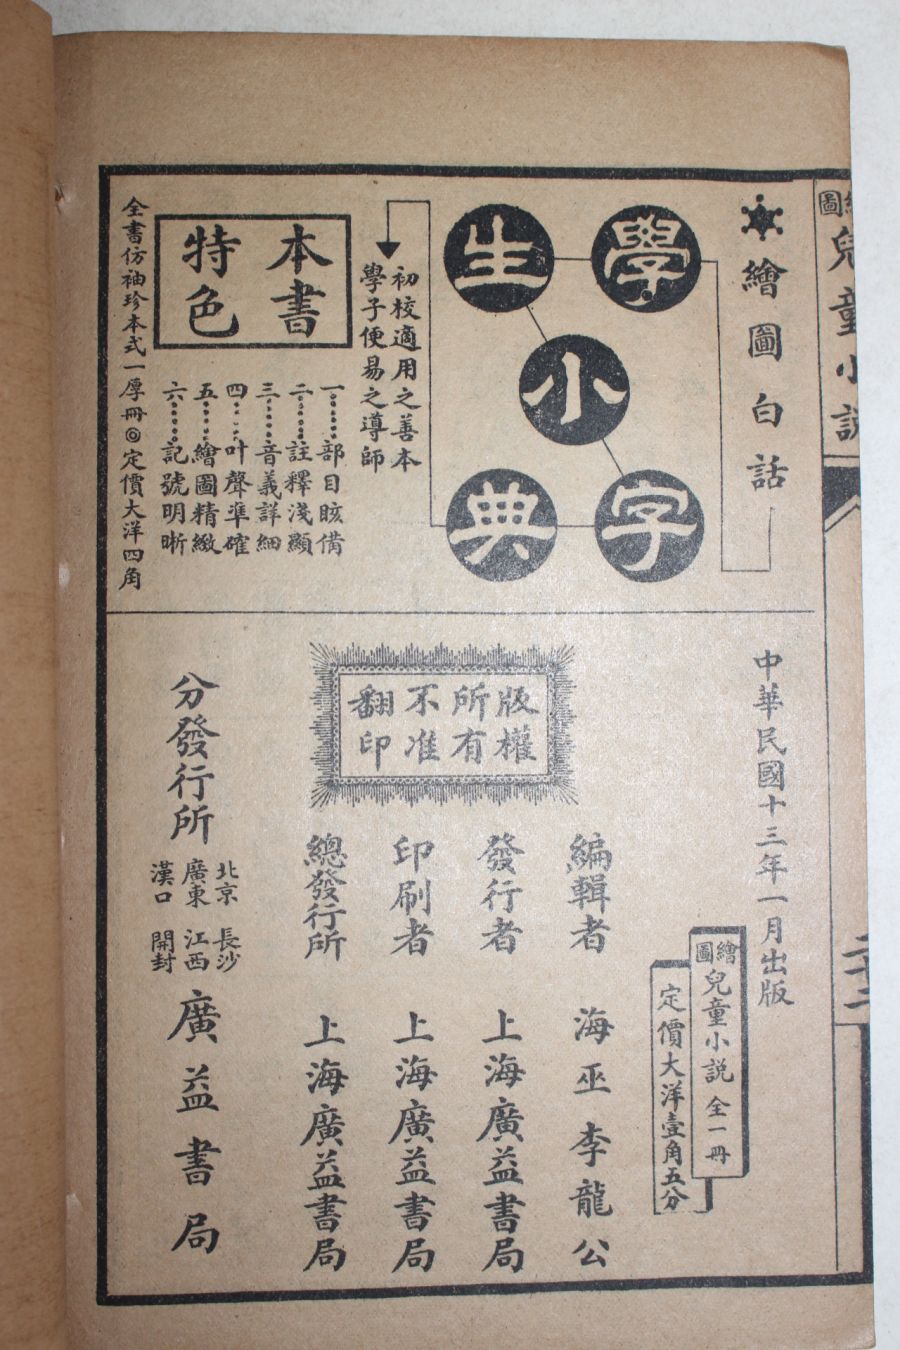 繪圖白話
學生小字典
初校適用之善本
學子便易之導師
本書特色
一……部目晐備
二……註釋淺顯
三……音義詳細
四……叶聲準確
五……繪圖精緻
六……記號明晰
全書仿袖珍本式一厚冊◎定價大洋四角
中華民國十三年一月出版
繪圖兒童小説 全一冊
定價大洋壹角五分
版權所有不准翻印
編輯者 海巫李龍公
發行者 上海廣益書局
印刷者 上海廣益書局
總發行所 上海廣益書局
分發行所
北京 長沙
廣東 江西
漢口 開封
廣益書局
繪圖兒童小説